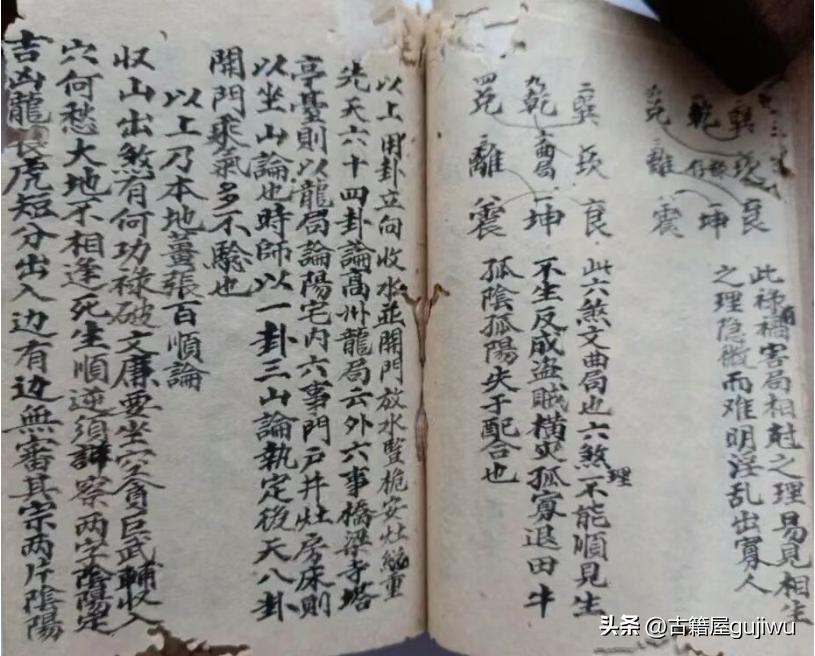 巽 乾 兑
坎 禄存 離
艮 坤 震
此禄禍害局相尅之理易見相生
之理隐微而难明淫乱出寡人
巽 九乾 四兑
坎 曲局 離
艮 一坤 震
此六煞文曲局也六煞一不能順見生
理
不生反成盗賊横灾孤寡退田牛
孤陰孤陽失于配合也
以上用卦立向收水並開門放水豎桅安灶総重
先天六十四卦論高州龍局云外六事橋梁寺塔
亭臺則以龍局論陽宅内六事門戸井灶房床則
以坐山論也時師以一卦三山論執定後天八卦
開門乘氣多不驗也
以上乃本地薑張百順論
収山出煞有何功禄破文廉要坐空貪巨武輔収入
穴何愁大地不相逢死生順逆須詳察两字陰陽定
吉凶龍長虎短分出入边有边無審其宗两片陰陽
头条 @古籍屋gujiwu